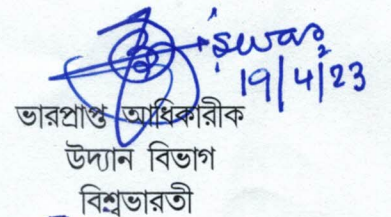 19/4/23
ভারপ্রাপ্ত আধিকারীক
উদ্যান বিভাগ
বিশ্বভারতী